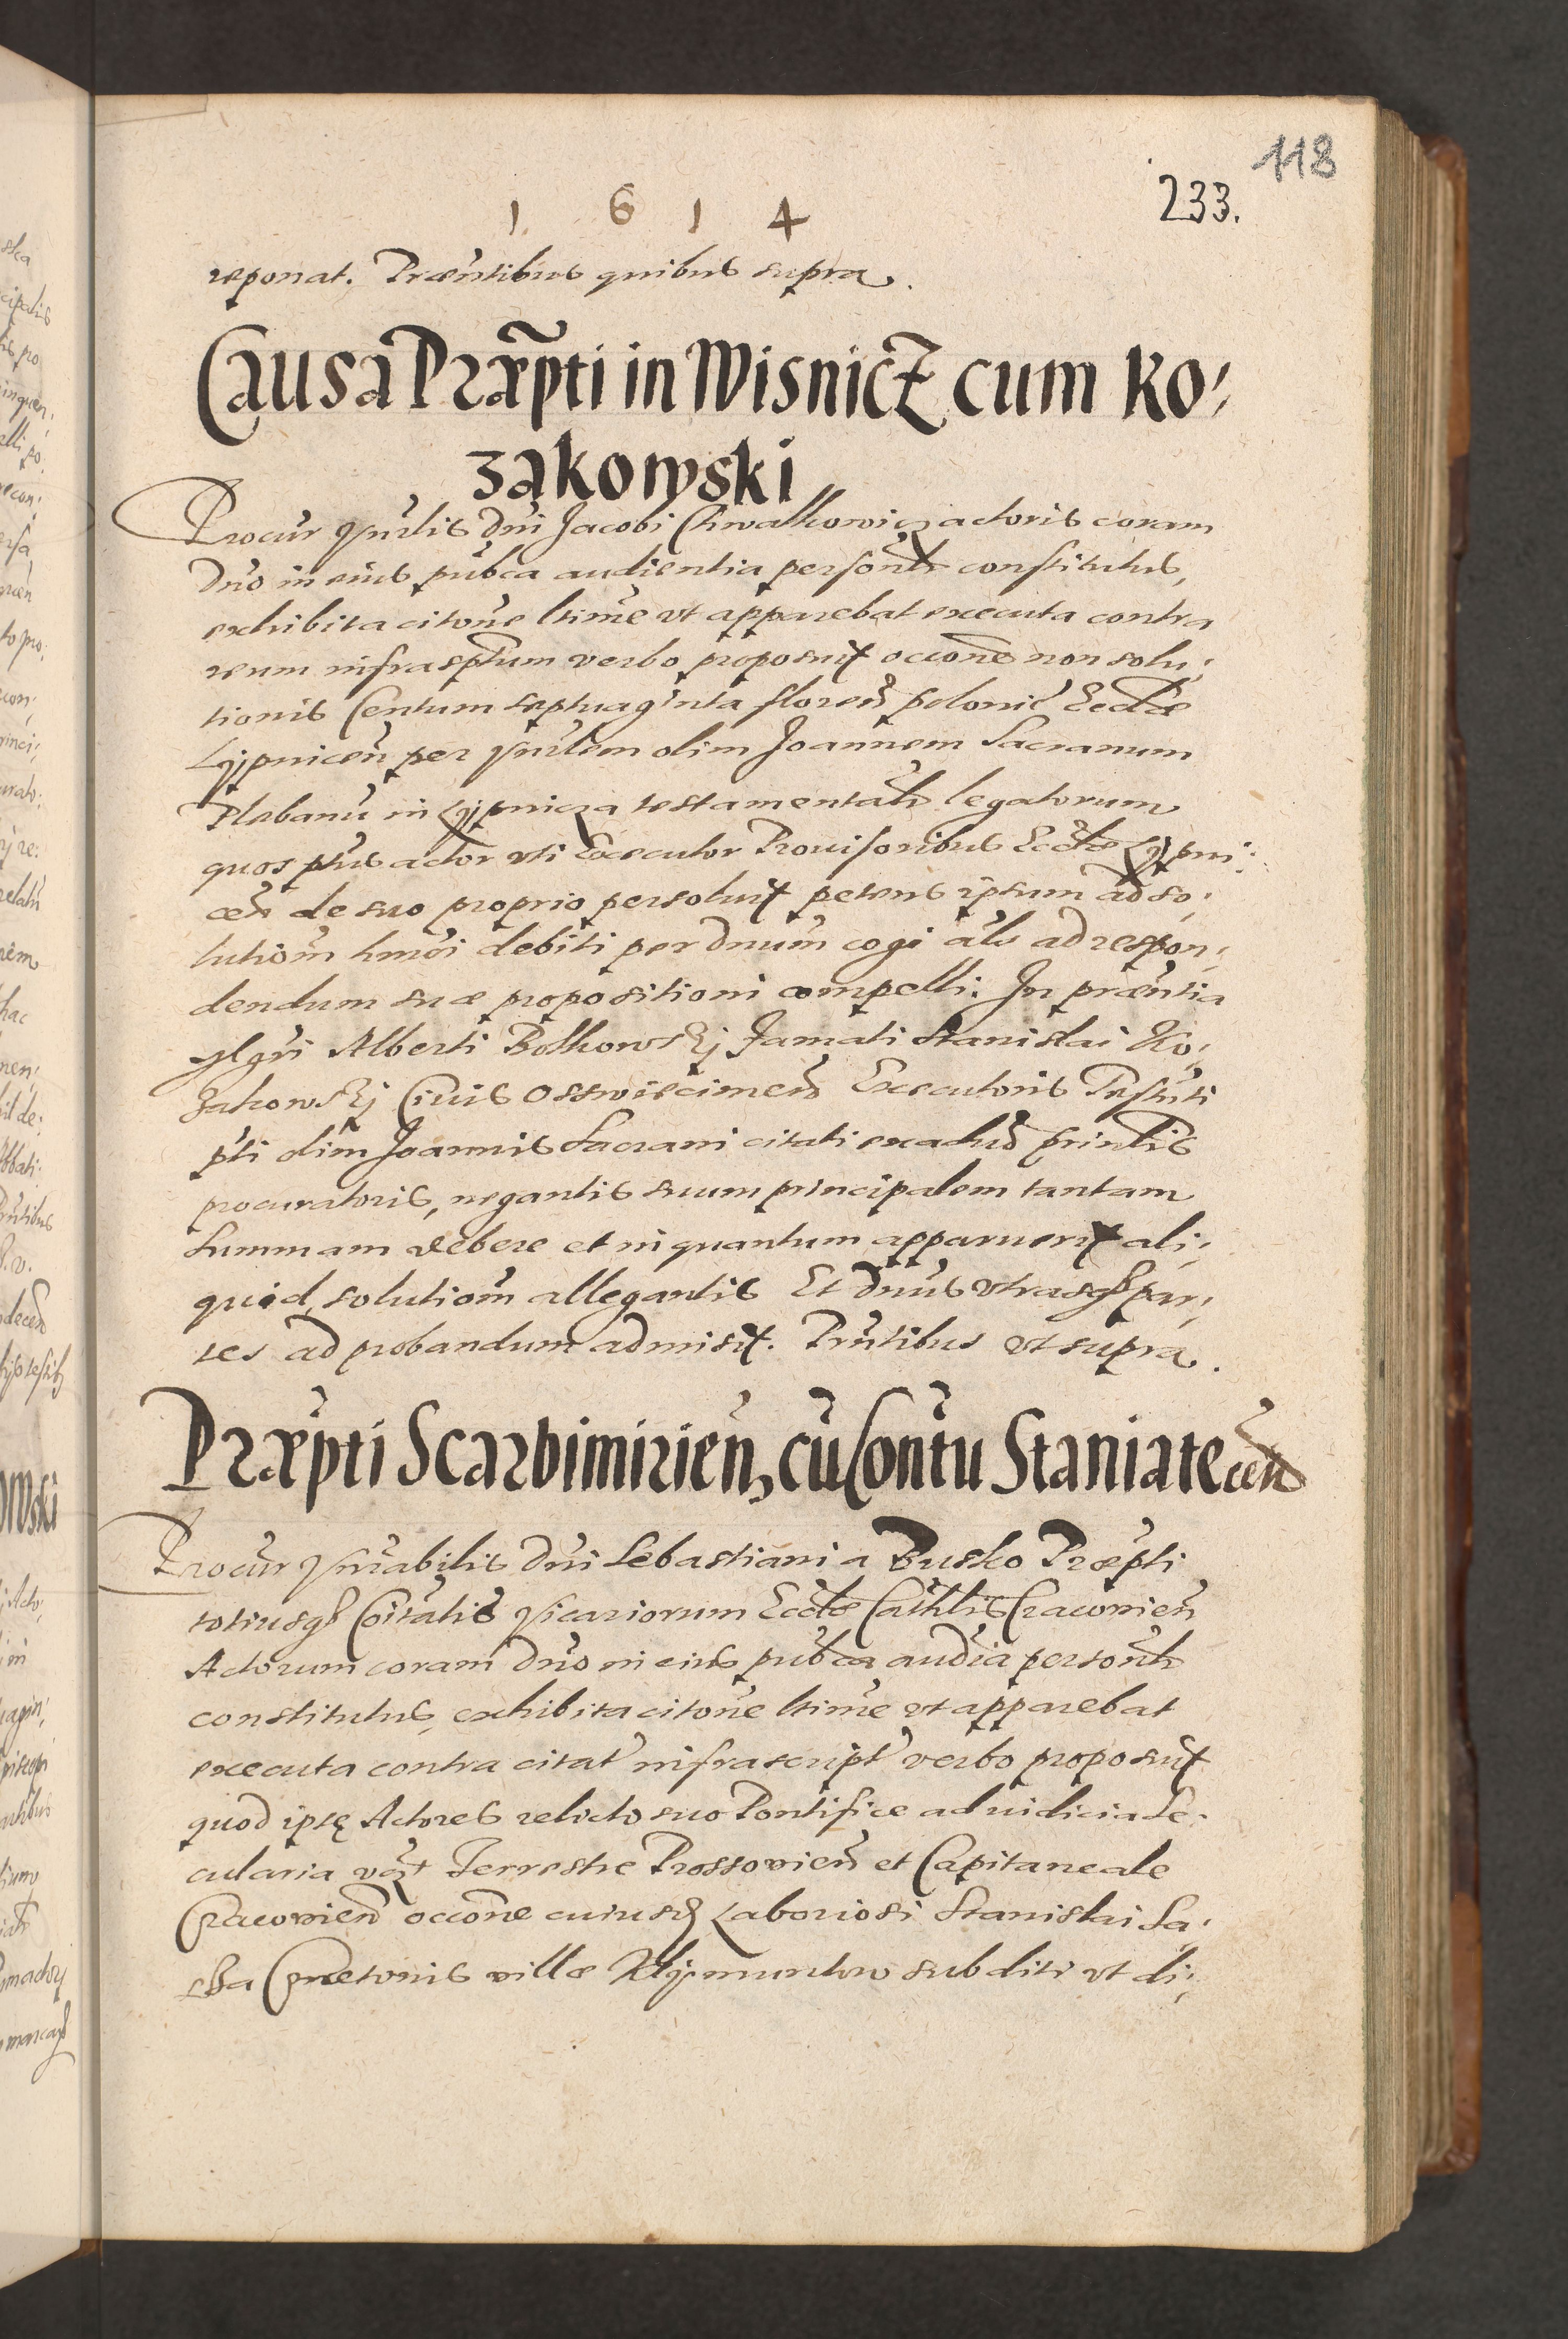 118
1 6 1 4
233.
reponat. Præntibus quibus supra.
Causa Præpti in Wisnicz cum Ko,
zakowski
Procur Vnrlis Dni Jacobi Chwalkowicz actoris coram
Dno in eius pubca audientia personlr constitutus,
exhibita citone ltime vt apparebat executa contra
reum infrasptum verbo proposuit occone non solu,
tionis Centum septuaginta floren polonic Ecclæ
Lypnicen per Vnrlem olim Joannem Sacranum
Plebanu in Lypnicza testamentalr legatorum
quos ptus actor vti Executor Prouisoribus Ecclæ Lypni,
cen de suo proprio persoluit petens ipsum ad so,
lutiom hmoi debiti per dnum cogi als ad respon,
dendum suæ propositioni compelli. In præntia
Alberti Famati Stanislai Ko,
zakowskj Ciuis Osswiecimen Executoris Testnti
pti olim Joannis Sacrani citati prinlis
procuratoris, negantis suum principalem tantam
summam debere et in quantum apparuerit ali,
quid, solutiom allegantis Et Dnus vtrasq par,
tes ad probandum admisit. Prntibus vt supra.
Præpti Scarbimirien, cu Contu Staniatecen
Procur Vnrabilis Dni Sebastiani a Busko Præpti
totiusq Coitatis Vicariorum Ecclæ Cathlis Cracouien
Actorum coram Dno in eius pubca audia personlr
constitutus, exhibita citone ltime vt apparebat
executa contra citat infrascript verbo proposuit
quod ipsę Actores relicto suo Pontifice ad iudicia Se,
cularia vzt Terrestre Prossouien et Capitaneale
Cracouien occone cuiusd Laboriosi Stanislai Sa,
Cmetonis villæ Klymuntow subditi vt di,